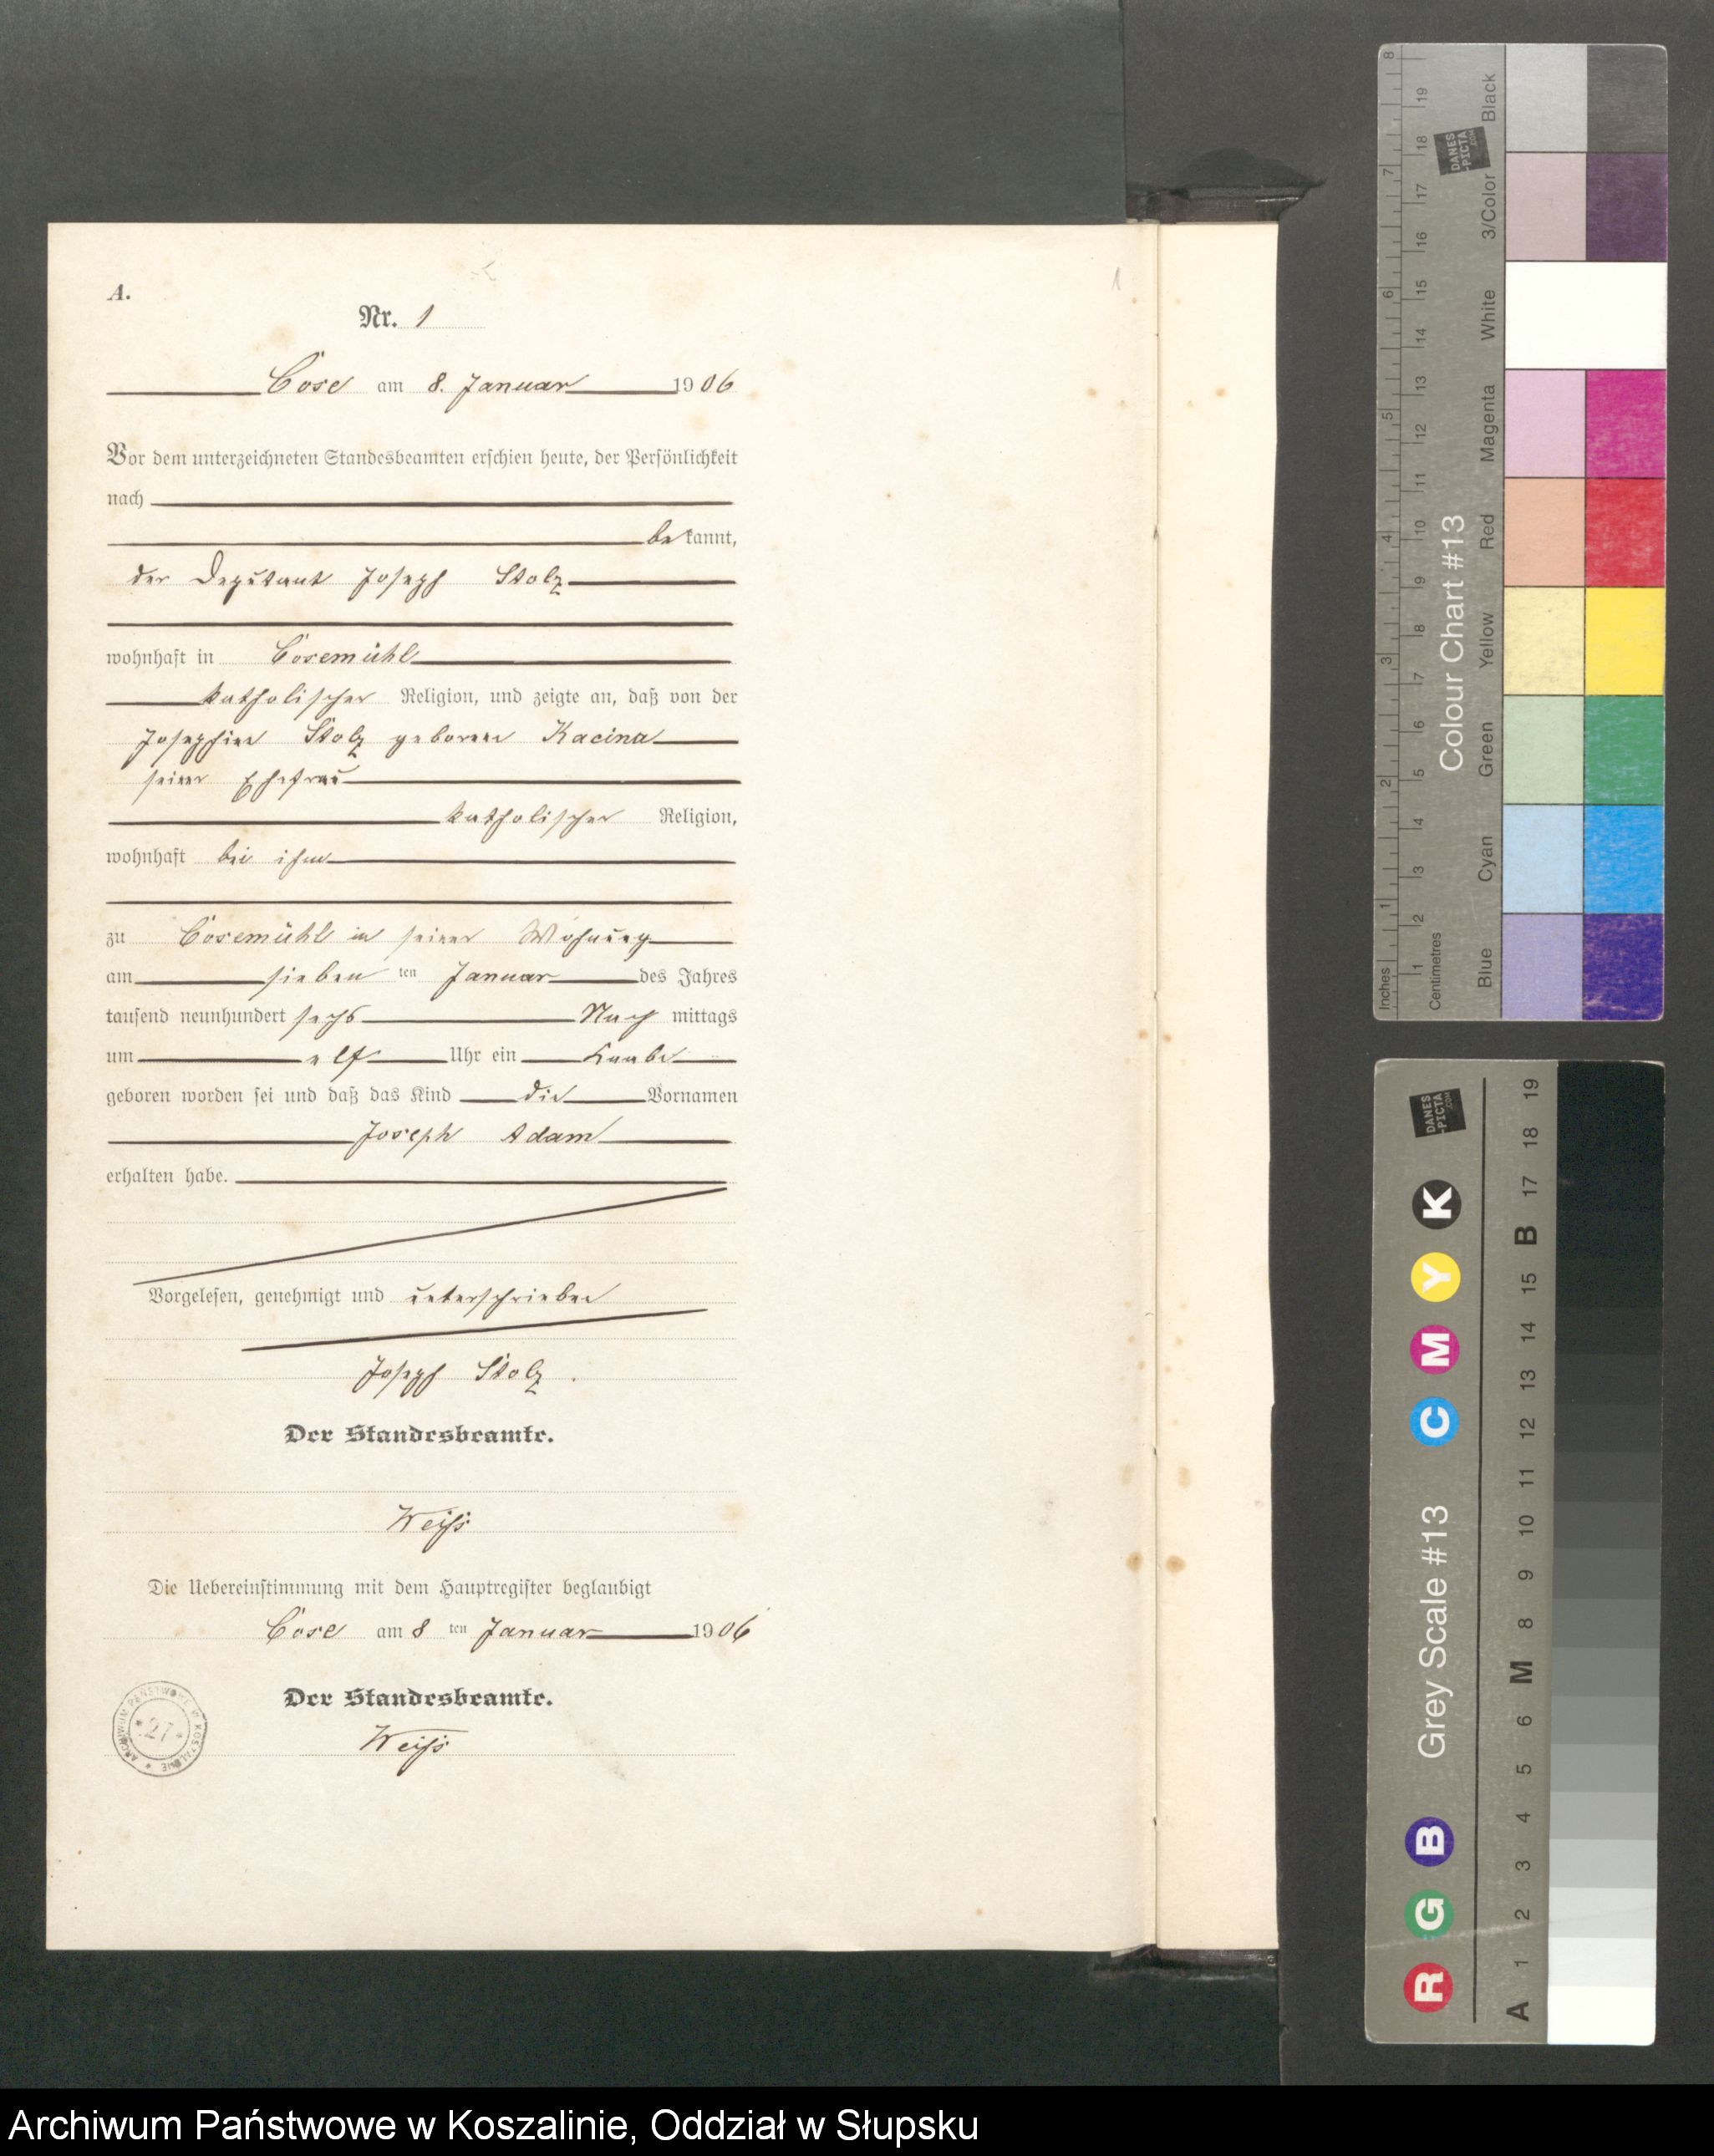 A.
1
Nr. 1
Cose am 8. Januar 1906
Vor dem unterzeichneten Standesbeamten erschien heute, der Persönlichkeit
nach
bekannt,
der Deputant Joseph Stolz
wohnhaft in Cosemühl
katholischer Religion, und zeigte an, daß von der
Josephine Stolz geborene Kacina
seiner Ehefrau
katholischer Religion,
wohnhaft bei ihm
zu Cosemühl in seiner Wohnung
am sieben ten Januar des Jahres
tausend neunhundert sechs Nach mittags
um elf Uhr ein Knabe
geboren worden sei und daß das Kind die Vornamen
Joseph Adam
erhalten habe.
Vorgelesen, genehmigt und unterschrieben
Joseph Stolz.
Der Standesbeamte.
Weiß
Die Uebereinstimmung mit dem Hauptregister beglaubigt
Cose am 8 ten Januar 1906
Der Standesbeamte.
Weiß
ARCHIWUM PAŃSTWOWE W KOSZALINIE
* 27 *
Inches 1 2 3 4 5 6 7 8
Centimetres 1 2 3 4 5 6 7 8 9 10 11 12 13 14 15 16 17 18 19
Colour Chart #13
DANES-PICTA.COM
Blue Cyan Green Yellow Red Magenta White 3/Color Black
Grey Scale #13
R G B C M Y K
DANES-PICTA.COM
A 1 2 3 4 5 6 M 8 9 10 11 12 13 14 15 B 17 18 19
Archiwum Państwowe w Koszalinie, Oddział w Słupsku